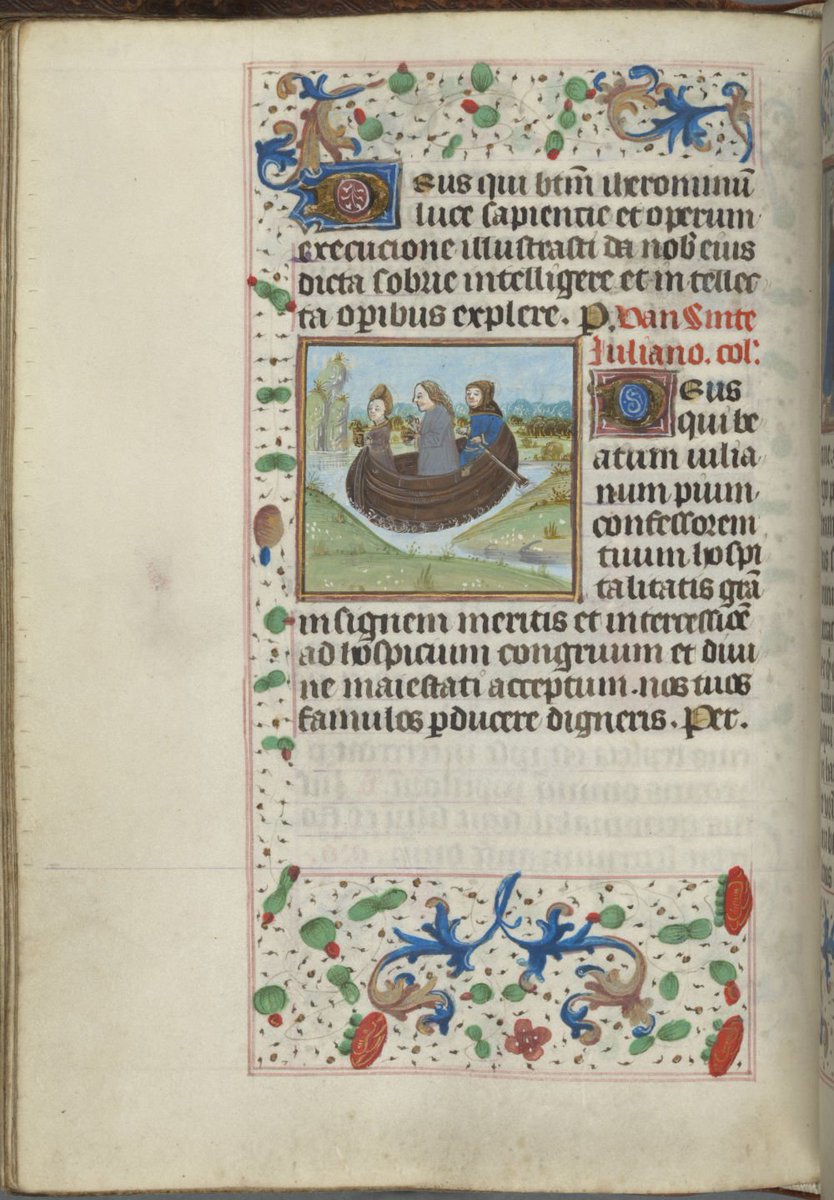 Deus qui btm̄ iheronimū
luce sapientie et operum
execucione illustrasti da nob̄ eius
dicta sobrie intelligere et intellec
ta op̄ibus explere. P. Van Sinte
Juliano. col'.
Deus
qui be
atum iulia
num pium
confessorem
tuum hospi
talitatis grā
insignem meritis et intercessiōe
ad hospicium congruum et diui
ne maiestati acceptum. nos tuos
famulos p̄ducere digneris. Per.